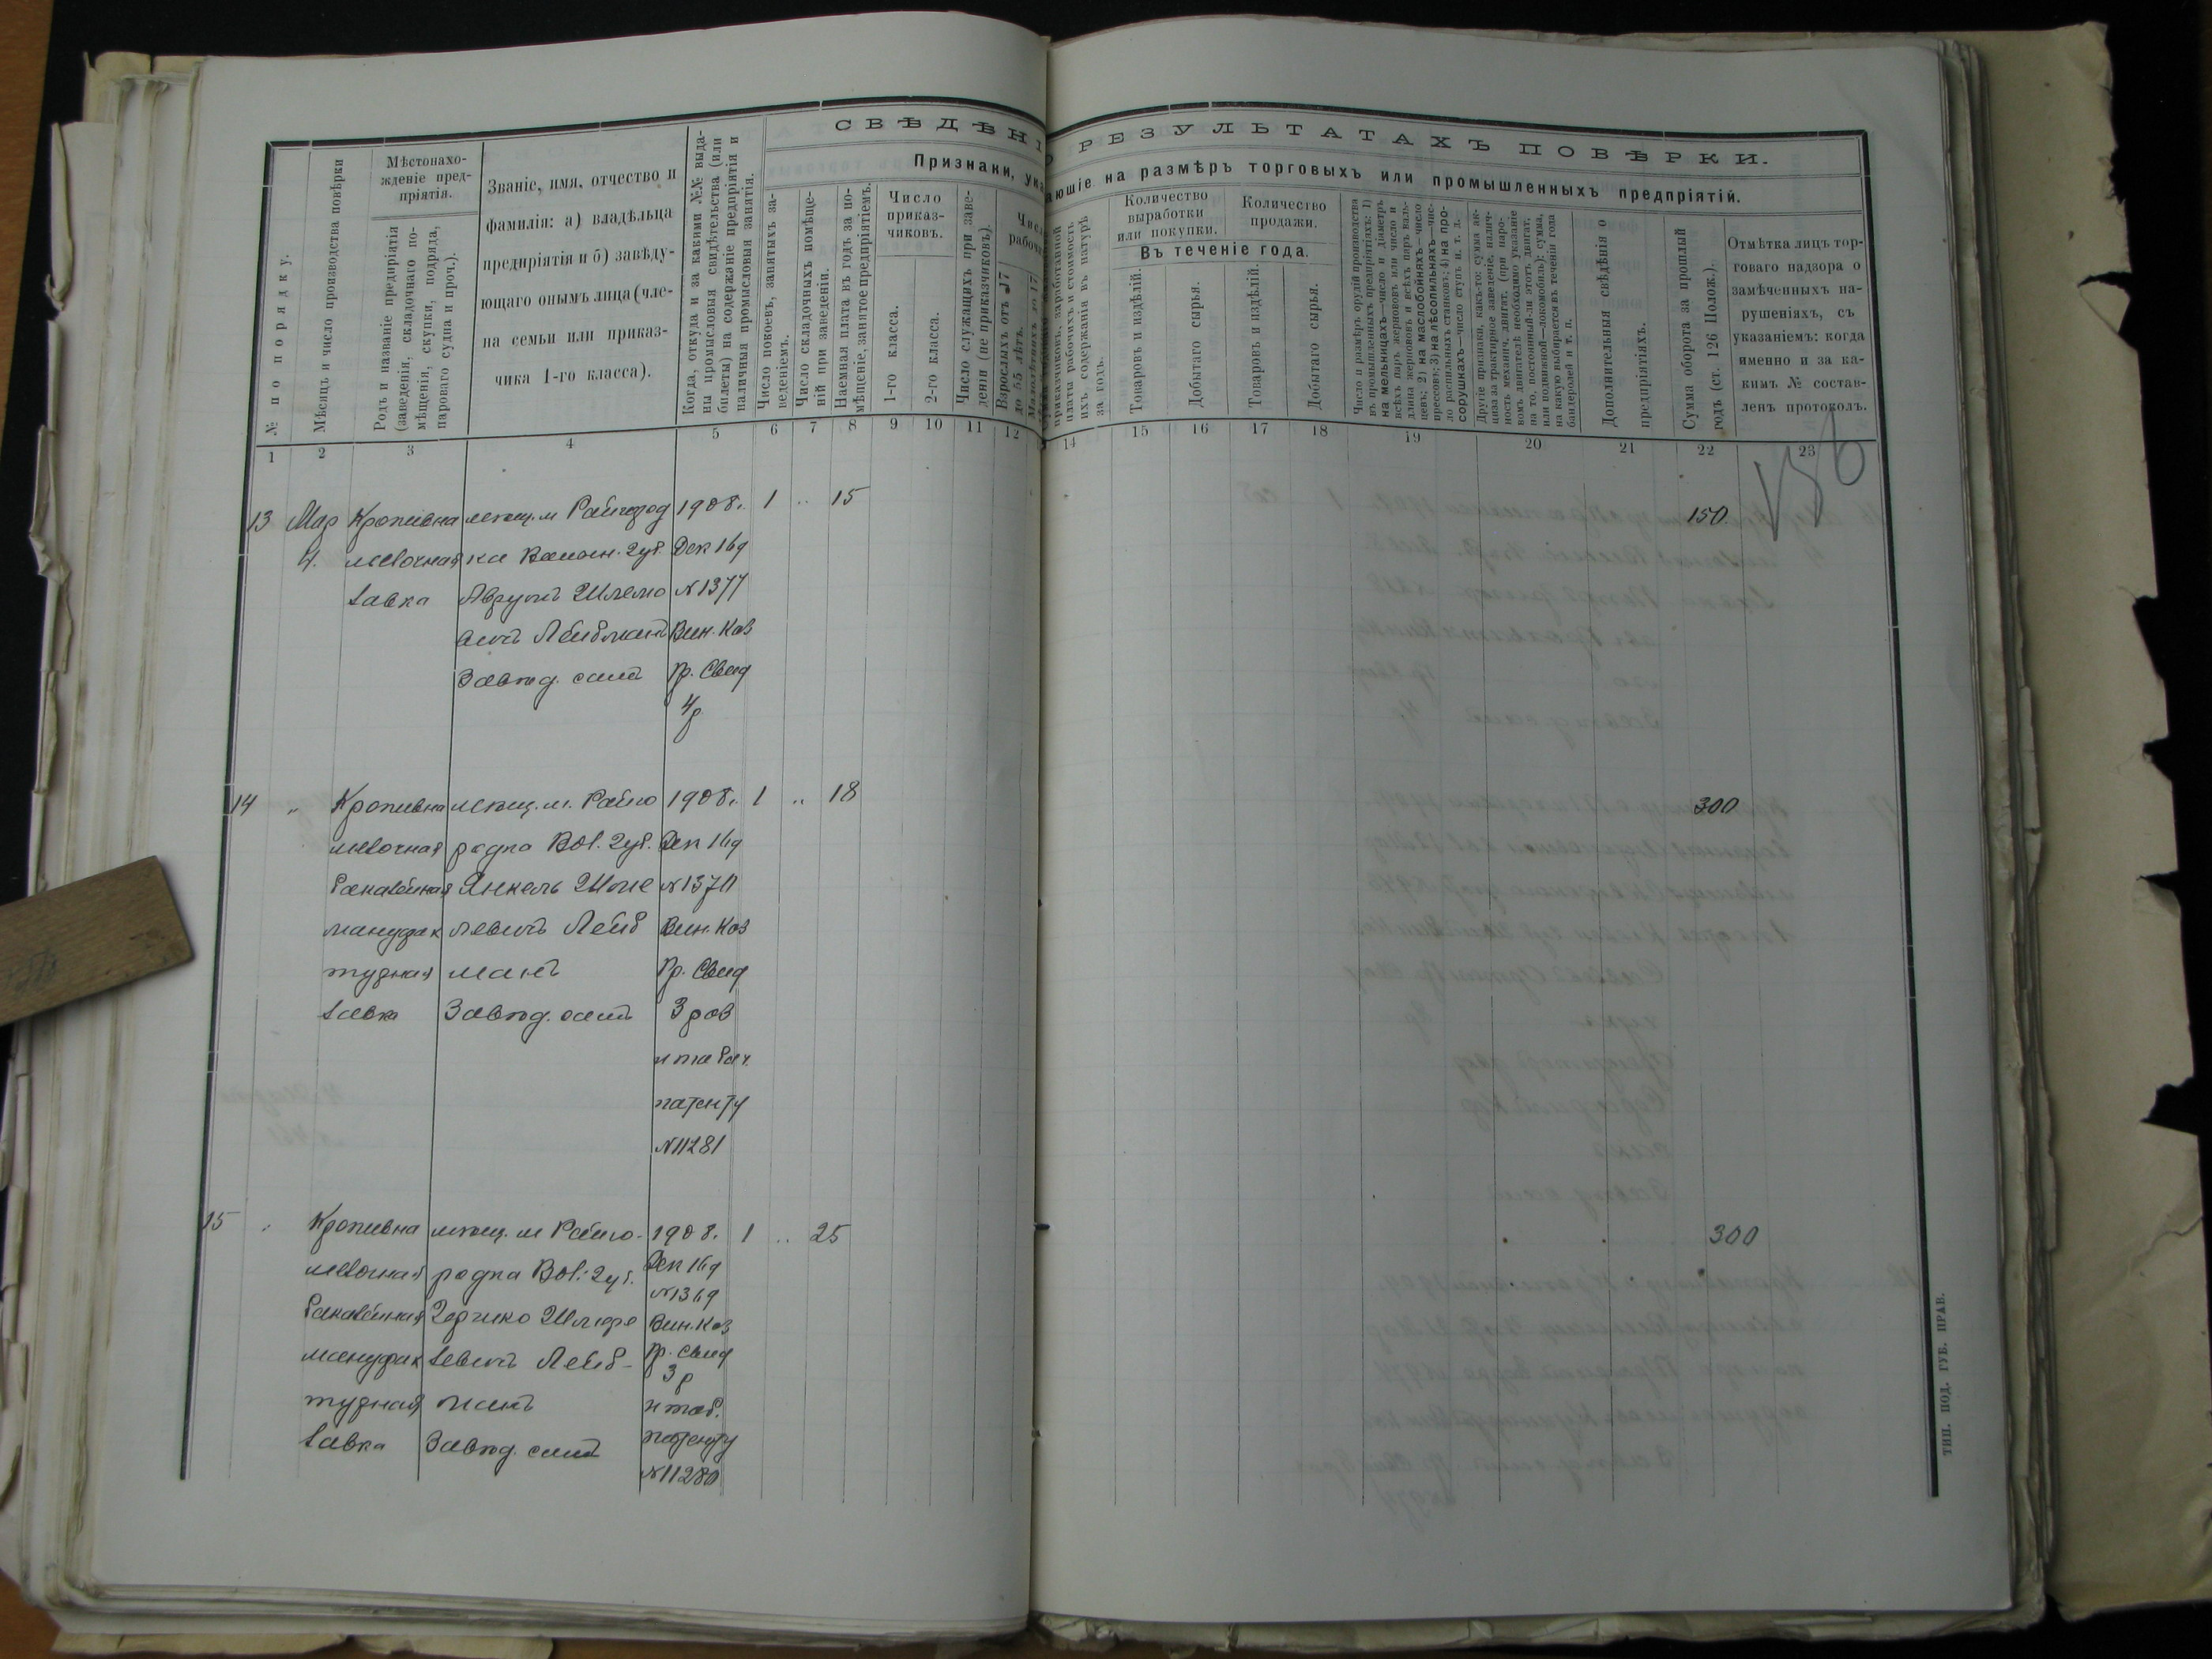 СВѢДѢНІ
О РЕЗУЛЬТАТАХЪ ПОВѢРКИ.
Признаки, ука
ающіе на размѣръ торговыхъ или промышленныхъ предпріятій.
№ по порядку.
Мѣсяцъ и число производства повѣрки
Мѣстонахо-
жденіе пред-
пріятія.
Родъ и названіе предпріятія
(заведенія, складочнаго по-
мѣщенія, скупки, подряда,
пароваго судна и проч.).
Званіе, имя, отчество и
фамилія: а) владѣльца
предпріятія и б) завѣду-
ющаго онымъ лица (чле-
на семьи или приказ-
чика 1-го класса).
Когда, откуда и за какими №№ выда-
ны промысловыя свидѣтельства (или
билеты) на содержаніе предпріятія и
наличныя промысловыя занятія.
Число покоевъ, занятыхъ за-
веденіемъ.
Число складочныхъ помѣще-
ній при заведеніи.
Наемная плата въ годъ за по-
мѣщеніе, занятое предпріятіемъ.
Число
приказ-
чиковъ.
1-го класса.
2-го класса.
Число служащихъ при заве-
деніи (не приказчиковъ).
Взрослыхъ отъ 17
до 55 лѣтъ.
приказчиковъ, заработанной
платы рабочихъ и стоимость
ихъ содержанія въ натурѣ
за годъ.
Количество
выработки
или покупки.
Количество
продажи.
Въ теченіе года.
Товаровъ и издѣлій.
Добытаго сырья.
Товаровъ и издѣлій.
Добытаго сырья.
Число и размѣръ орудій производства
въ промышленныхъ предпріятіяхъ: 1)
на мельницахъ—число и діаметръ
всѣхъ паръ жернововъ или число и
длина жернововъ и всѣхъ паръ валь-
цевъ; 2) на маслобойняхъ—число
прессовъ; 3) на лѣсопильняхъ—чис-
ло распильныхъ станковъ; 4) на про-
сорушкахъ—число ступъ и. т. д.
Другіе признаки, какъ-то: сумма ак-
циза за трактирное заведеніе, налич-
ность механич. двигат. (при паро-
вомъ двигателѣ необходимо указаніе
на то, постоянный-ли этотъ двигат.
или подвижной—локомобиль): сумма,
на какую выбирается въ теченіи года
бандеролей и т. п.
Дополнительныя свѣдѣнія о
предпріятіяхъ.
Сумма оборота за прошлый
годъ (ст. 126 Полож.).
Отмѣтка лицъ тор-
говаго надзора о
замѣченныхъ на-
рушеніяхъ, съ
указаніемъ: когда
именно и за ка-
кимъ № состав-
ленъ протоколъ.
1 2 3 4 5 6 7 8 9 10 11 12 14 15 16 17 18 19 20 21 22 23
13 Мар Кропивна мѣщ. м Райгород 1908г. 1 .. 15 150.
4. мелочная ка Волын. Губ. Дек 16д
лавка Аврумъ Шлемо №1377
вичъ Лейбманъ Вин. Каз
Завѣд. самъ Пр. Свид
4р
14 „ Кропивна мѣщ. м. Райго 1908г. 1 .. 18 300
мелочная родка Вол. Губ. Дек 16д
бакалейная Янкель Шме №1370
мануфак левичъ Лейб Вин. Каз
турная манъ Пр. Свид
лавка Завѣд. самъ 3 раз
и табач.
патенту
№11281
15 „ Кропивна мѣщ. м Райго- 1908. 1 .. 25 300
мелочная родка Вол. Губ. Дек 16д
№1369
бакалейная Гершко Шмер Вин. Каз
мануфак левичъ Лейб- Пр. Свид
3 р
турная манъ и таб.
лавка Завѣд. самъ патенту
№11280
ТИП. ПОД. ГУБ. ПРАВ.